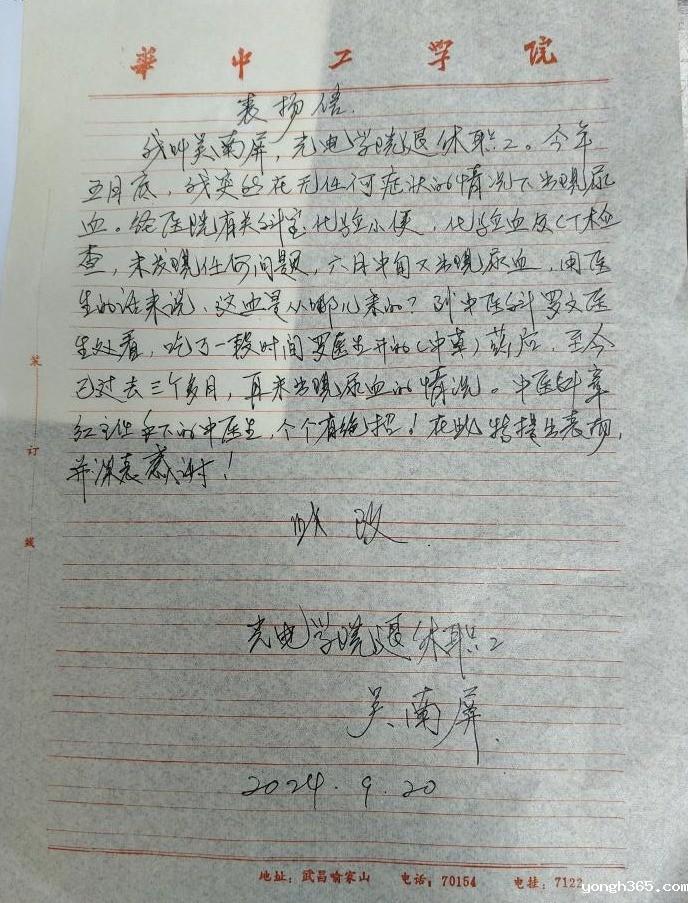 華中工学院
表扬信.
我叫吴南屏,光电学院退休职工。今年
五月底,我突然在无任何症状的情况下出现尿
血。经医院有关科室化验小便,化验血及CT检
查,未发现任何问题,六月中旬又出现尿血,用医
生的话来说,这血是从哪儿来的?到中医科罗文医
生处看,吃了一段时间罗医生开的(中草)药后,至今
已过去三个多月,再未出现尿血的情况。中医科章
红主任手下的中医生,个个有绝招!在此特提出表扬,
并深表感谢!
此致
光电学院退休职工
吴南屏.
2024.9.20
装
订
线
地址:武昌喻家山 电话:70154 电挂:7122
yongh365.com